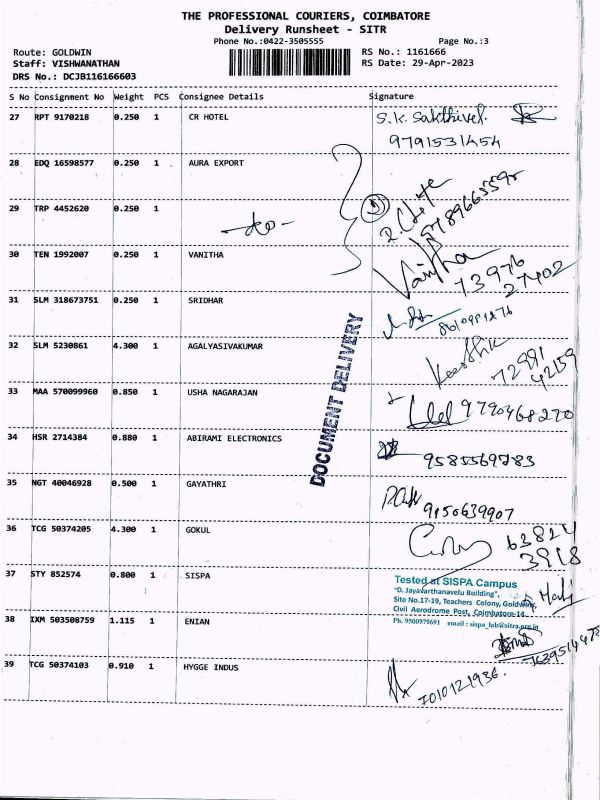 THE PROFESSIONAL COURIERS, COIMBATORE
Delivery Runsheet - SITR
Phone No.:0422-3505555 Page No.:3
Route: GOLDWIN RS No.: 1161666
Staff: VISHWANATHAN RS Date: 29-Apr-2023
DRS No.: DCJB116166603
S No Consignment No Weight PCS Consignee Details Signature
27 RPT 9170218 0.250 1 CR HOTEL S.K. Sakthivel.
9791531454
28 EDQ 16598577 0.250 1 AURA EXPORT
29 TRP 4452620 0.250 1
-do-
30 TEN 1992007 0.250 1 VANITHA Vanitha
73976
27402
31 SLM 318673751 0.250 1 SRIDHAR
32 SLM 5230861 4.300 1 AGALYASIVAKUMAR Keerthik
72991
42159
33 MAA 570099960 0.850 1 USHA NAGARAJAN 9790468270
DOCUMENT DELIVERY
34 HSR 2714384 0.880 1 ABIRAMI ELECTRONICS
9585569783
35 NGT 40046928 0.500 1 GAYATHRI
9150639907
36 TCG 50374205 4.300 1 GOKUL 63824
3918
37 STY 852574 0.800 1 SISPA Tested at SISPA Campus
"D. Jayavarthanavelu Building",
Site No.17-19, Teachers Colony, Goldwins,
Civil Aerodrome Post, Coimbatore-14
38 IXM 503508759 1.115 1 ENIAN Ph. 9500979691 email : sispa_lab@sitra.org.in
39 TCG 50374103 0.910 1 HYGGE INDUS
7010121936.